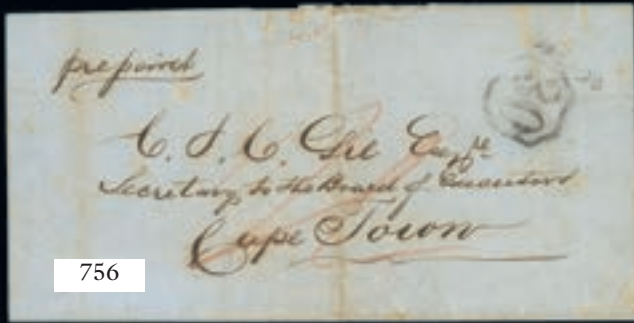 prepaid
C. J. C. Gie Esqre
Secretary to the Board of Executors
Cape Town
756